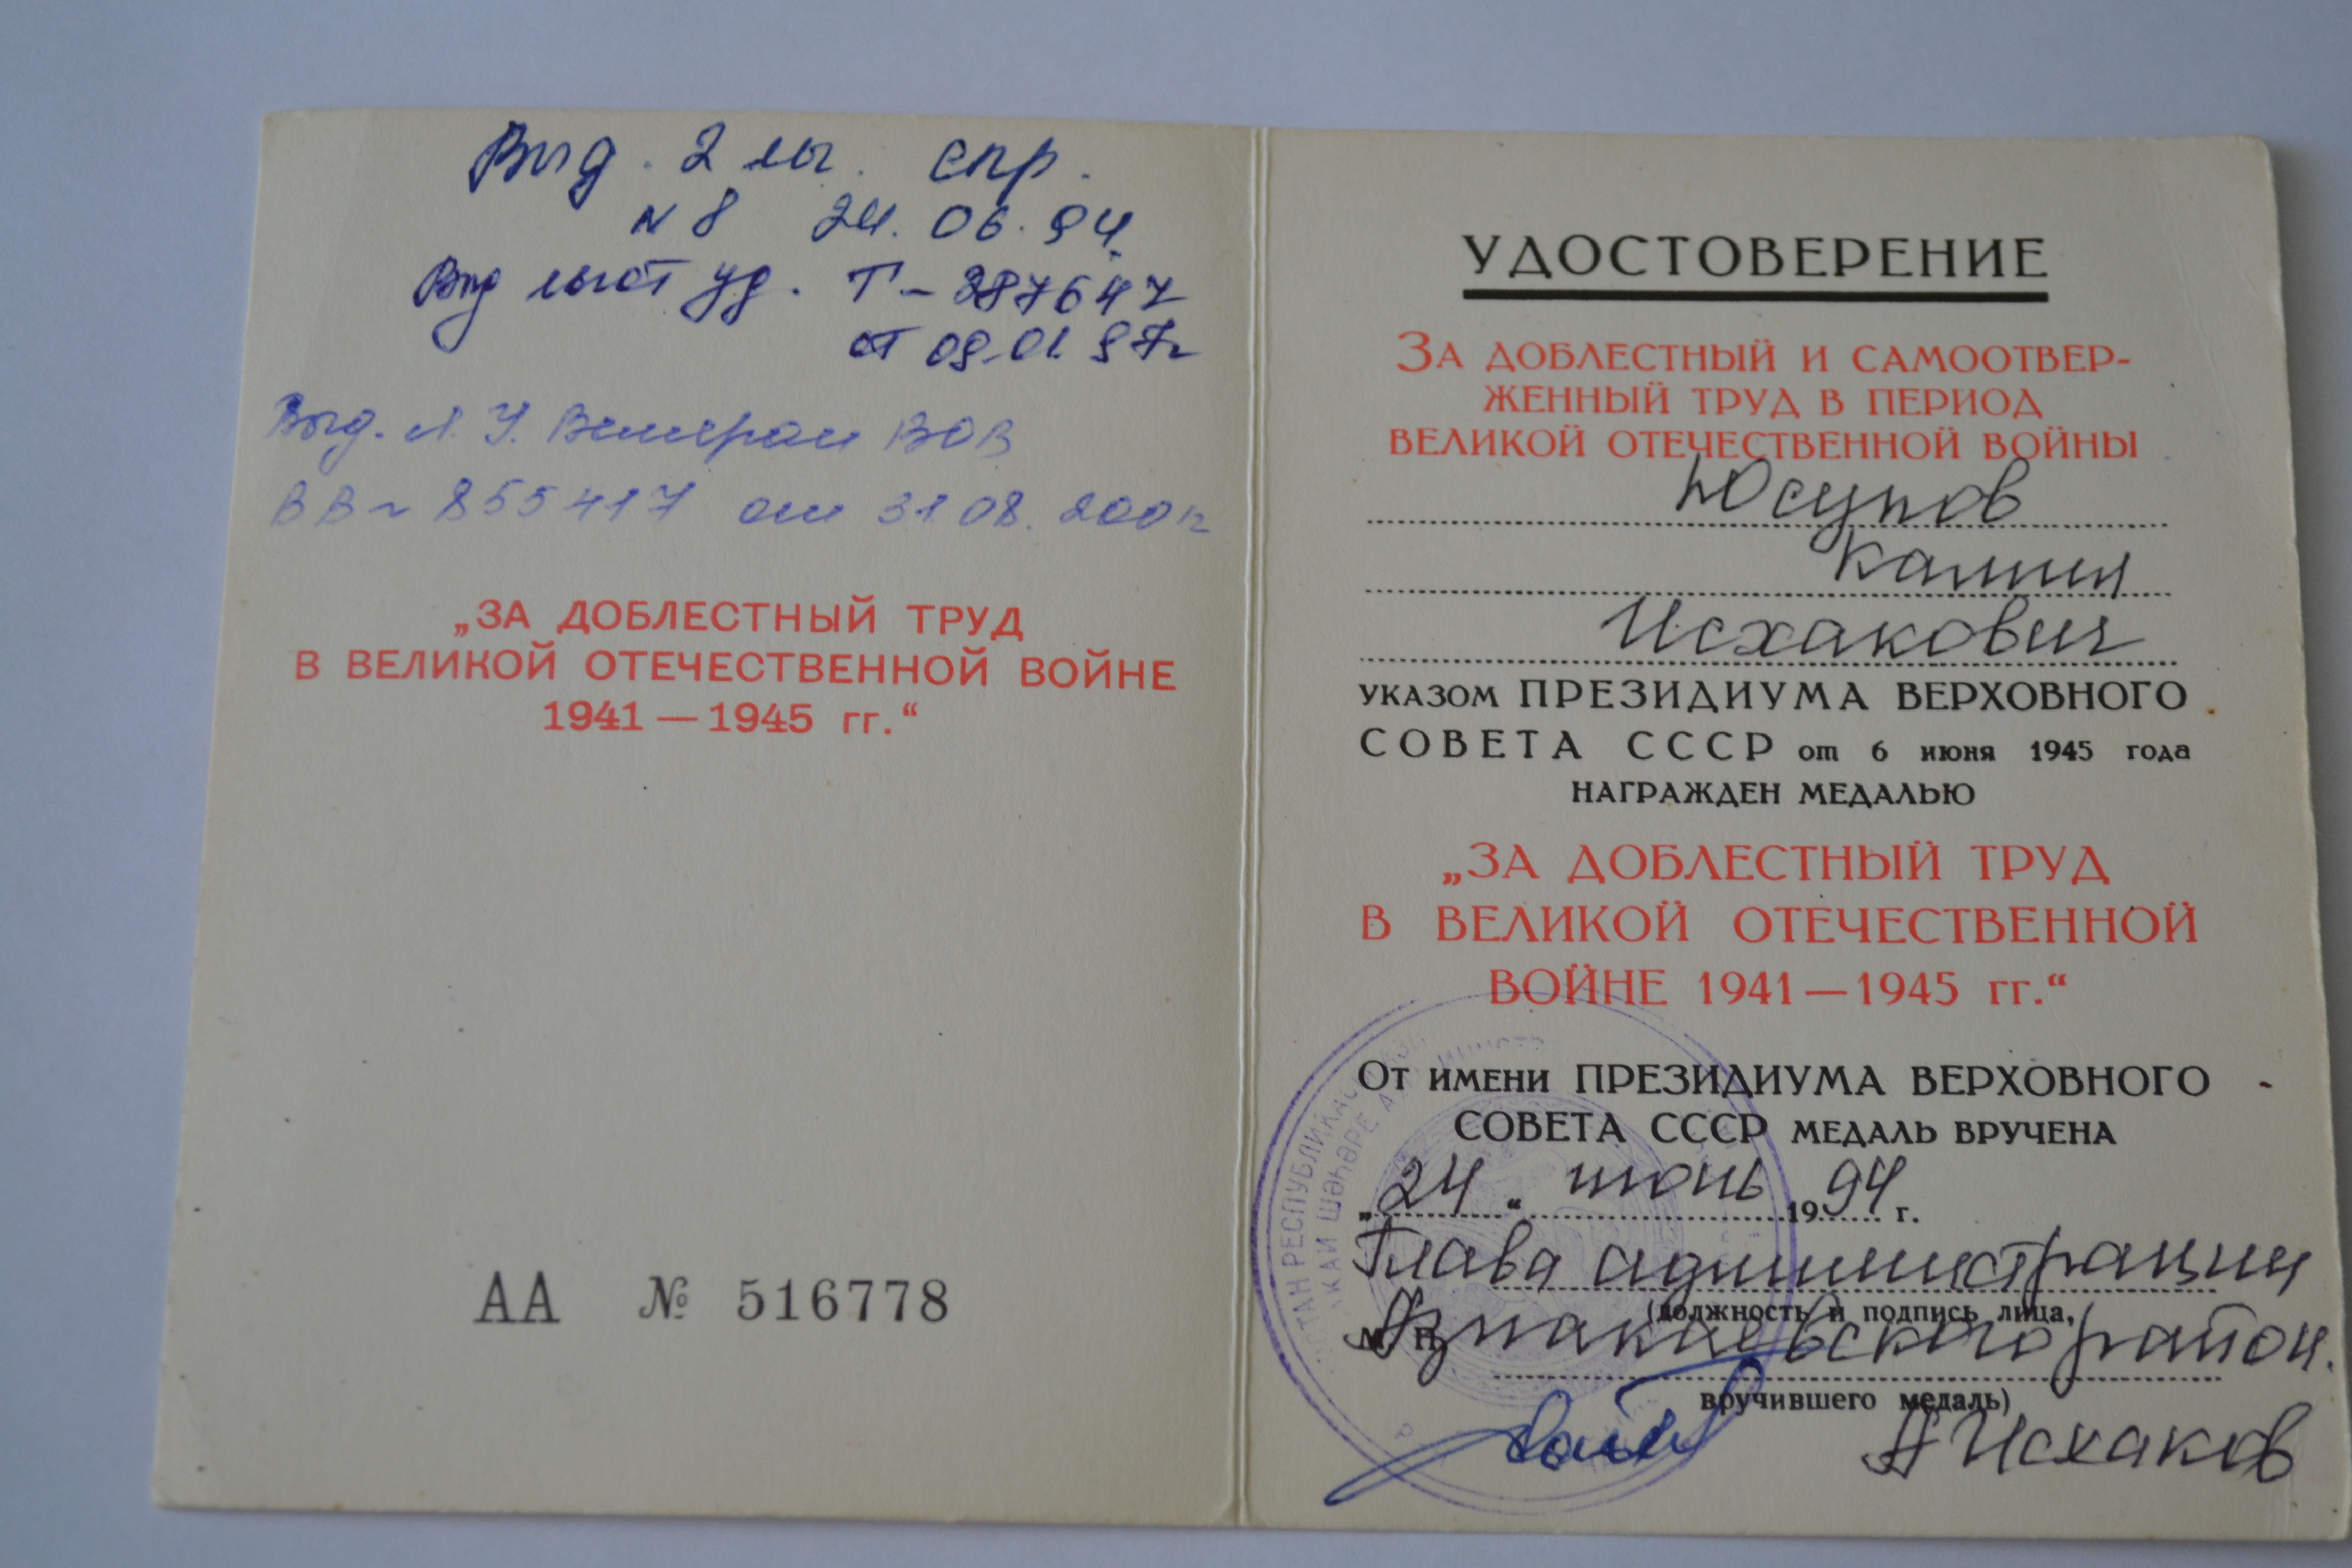 Выд. 2 мы. спр.
N 8 24.06.94.
Выд льгот уд. Т-287647
от 09.01 97г
Выд. Л. У. Ветеран ВОВ
ВВ 855417 от 31 08. 200
„ЗА ДОБЛЕСТНЫЙ ТРУД
В ВЕЛИКОЙ ОТЕЧЕСТВЕННОЙ ВОЙНЕ
1941 — 1945 гг.“
АА № 516778
УДОСТОВЕРЕНИЕ
ЗА ДОБЛЕСТНЫЙ И САМООТВЕР-
ЖЕННЫЙ ТРУД В ПЕРИОД
ВЕЛИКОЙ ОТЕЧЕСТВЕННОЙ ВОЙНЫ
Юсупов
Камил
Исхакович
УКАЗОМ ПРЕЗИДИУМА ВЕРХОВНОГО
СОВЕТА СССР от 6 июня 1945 года
НАГРАЖДЕН МЕДАЛЬЮ
„ЗА ДОБЛЕСТНЫЙ ТРУД
В ВЕЛИКОЙ ОТЕЧЕСТВЕННОЙ
ВОЙНЕ 1941 — 1945 гг.“
ОТ ИМЕНИ ПРЕЗИДИУМА ВЕРХОВНОГО
СОВЕТА СССР МЕДАЛЬ ВРУЧЕНА
„24“ июнь 1994 г.
Глава администрации
(должность и подпись лица,
М. П. Азнакаевского район.
вручившего медаль)
А Исхаков